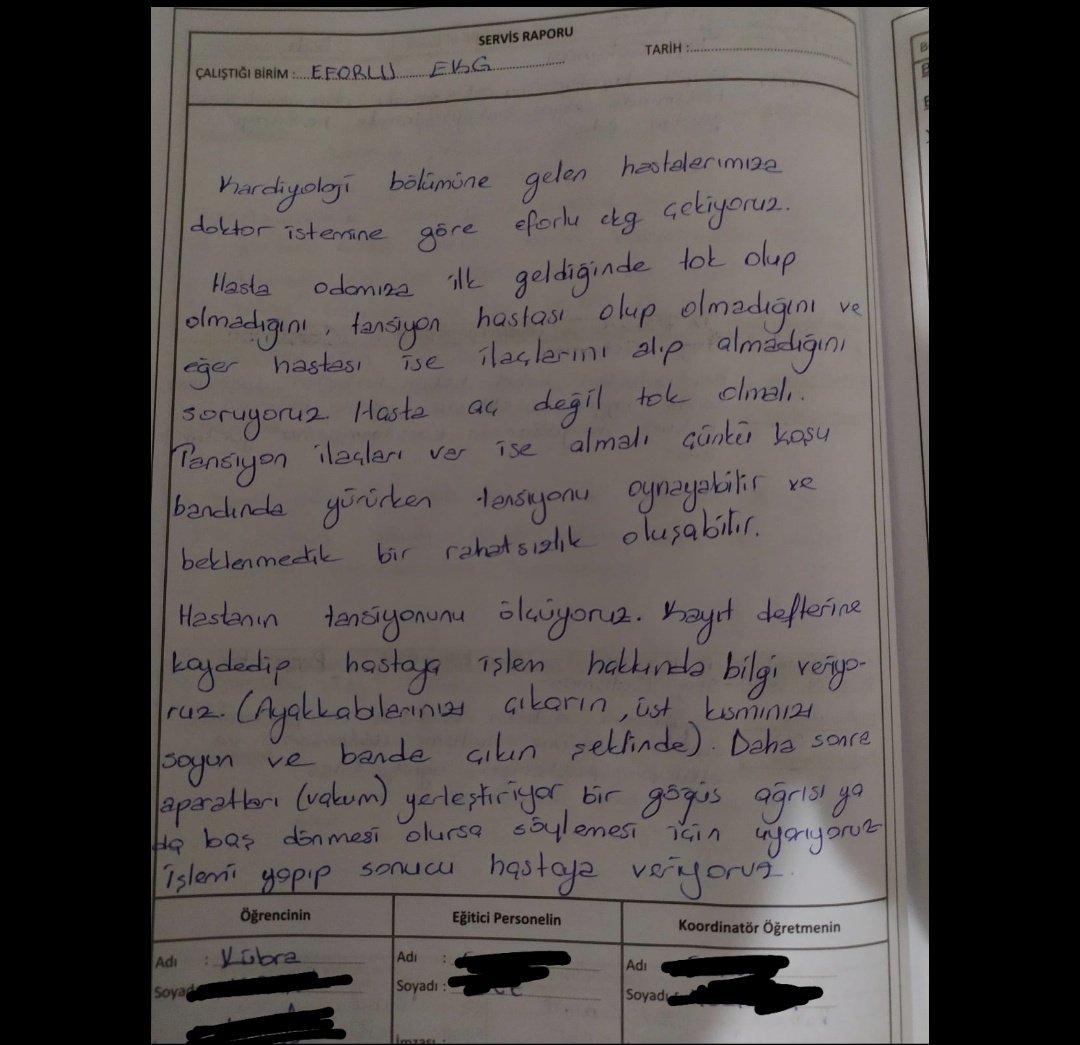 SERVİS RAPORU
ÇALIŞTIĞI BİRİM :... EFORLU EKG
TARİH :
Kardiyoloji bölümüne gelen hastalarımıza
doktor istemine göre eforlu ekg çekiyoruz.
Hasta odamıza ilk geldiğinde tok olup
olmadığını, tansiyon hastası olup olmadığını ve
eğer hastası ise ilaçlarını alıp almadığını
soruyoruz. Hasta aç değil tok olmalı.
Tansiyon ilaçları var ise almalı çünkü koşu
bandında yürürken tansiyonu oynayabilir ve
beklenmedik bir rahatsızlık oluşabilir.
Hastanın tansiyonunu ölçüyoruz. Kayıt defterine
kaydedip hastaya işlen hakkında bilgi veriyo-
ruz. (Ayakkabılarınızı çıkarın, üst kısmınızı
soyun ve banda çıkın şeklinde). Daha sonra
aparatları (vakum) yerleştiriyor bir göğüs ağrısı ya
da baş dönmesi olursa söylemesi için uyarıyoruz
işlemi yapıp sonucu hastaya veriyoruz.
Öğrencinin
Eğitici Personelin
Koordinatör Öğretmenin
Adı : Kübra
Adı :
Adı
Soyadı :
Soyadı
İmzası :